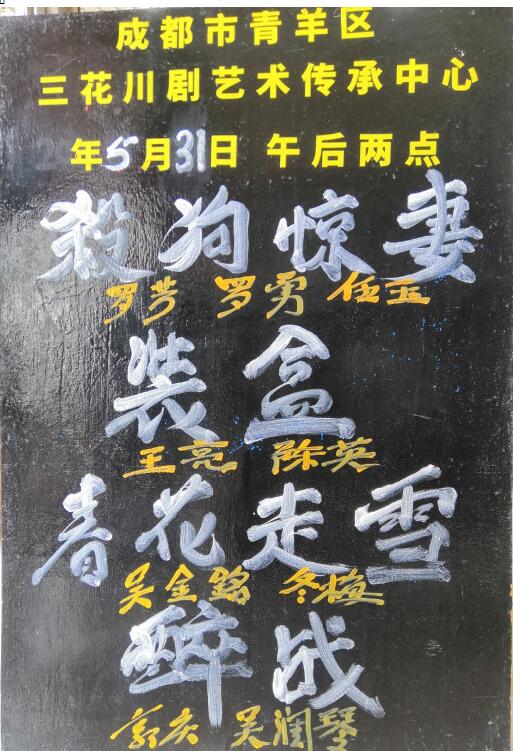 成都市青羊区
三花川剧艺术传承中心
年5月31日 午后两点
殺狗惊妻
罗芳 罗勇 任玉
装盒
王亮 陈英
春花走雪
吴金铭 冬梅
醉战
郭庆 吴润琴